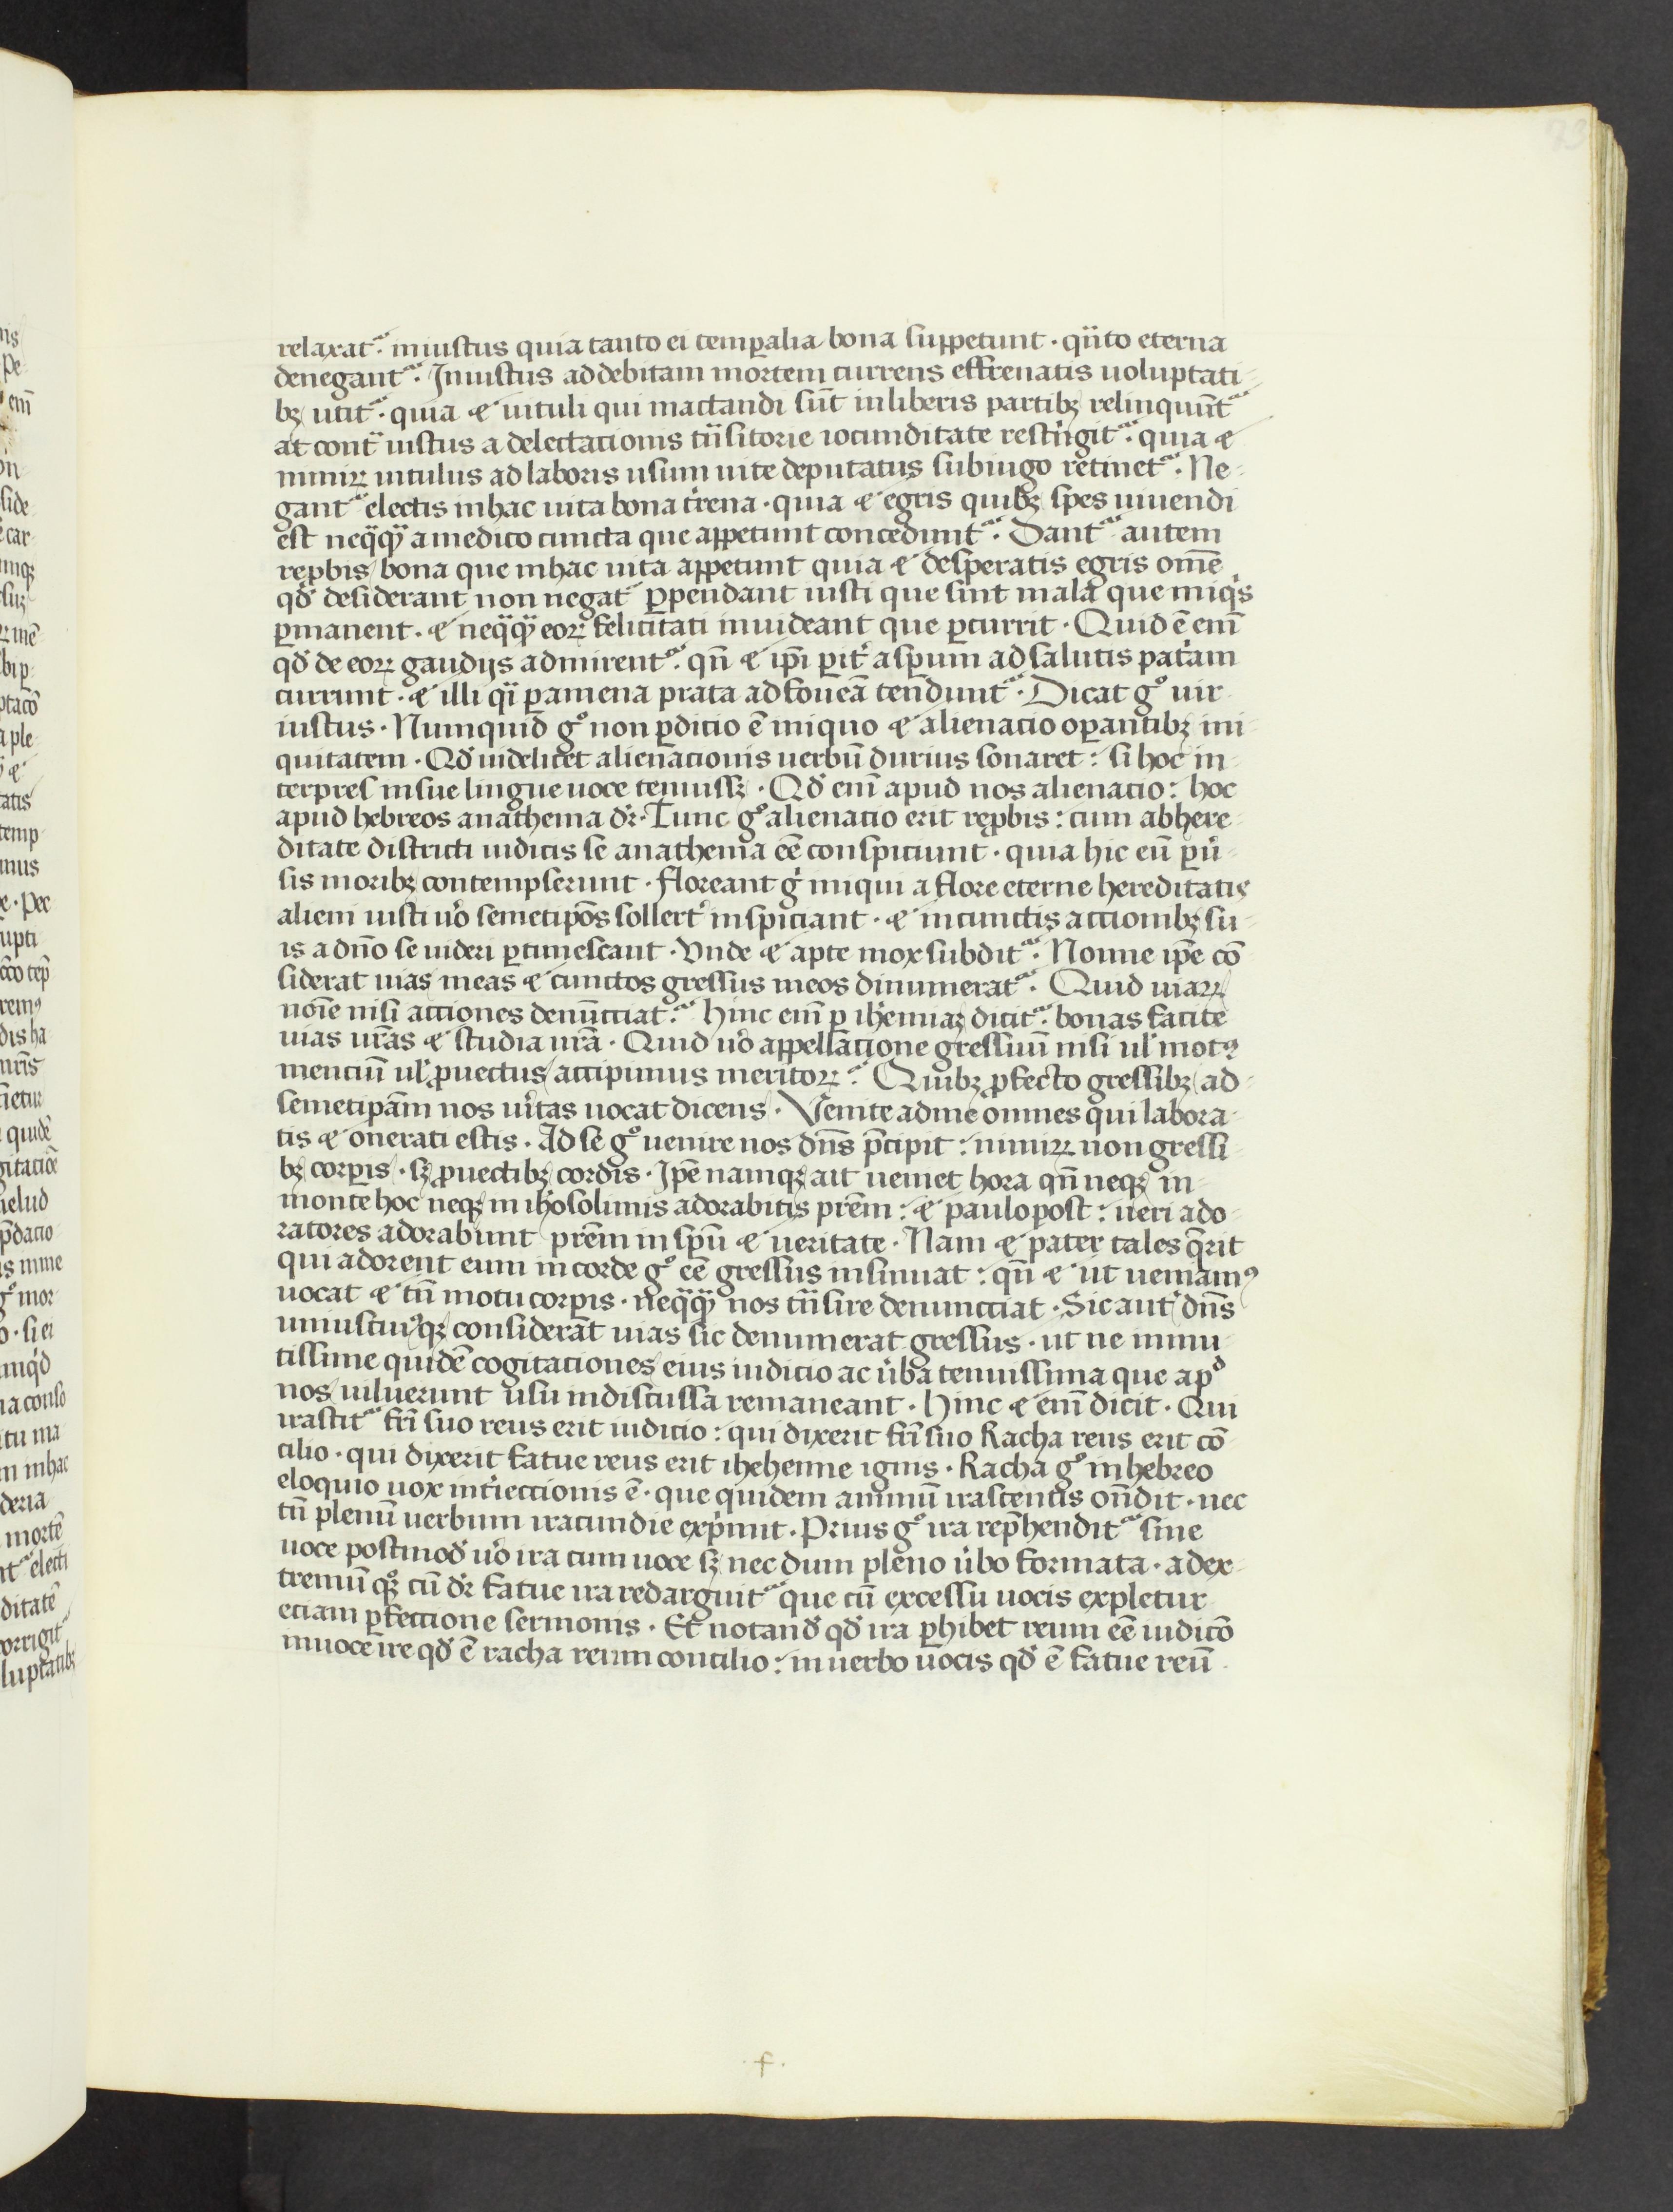 relaxat᷑. iniustus quia tanto ei temꝑalia bona suppetunt · qu̅to eterna
denegant᷑. Iniustus ad debitam mortem currens effrenatis uoluptati-
bꝫ utit᷑. quia ⁊ uituli qui mactandi su̅t in liberis partibꝫ relinqu̅unt᷑
at cont̾ iustus a delectacionis t̾nsitorie iocunditate rest̍ngit᷑. quia ⁊
nimiꝝ uitulus ad laboris usum uite deputatus sub iugo retinet᷑. Ne-
gant᷑ electis in hac uita bona t̾rena · quia ⁊ egris quibꝫ spes uiuendi
est neq̾q̾ꝫ a medico cuncta que appetunt concedunt᷑. Dant᷑ autem
reꝓbis bona que in hac uita appetunt quia ⁊ desperatis egris om̅e
qd̾ desiderant non negat᷑ ꝑpendant iusti que sint mala que iniq̍s
ꝑmanent · ⁊ neq̾q̾ꝫ eoꝝ felicitati inuideant que ꝑcurrit · Quid e̅ eni̅
qd̾ de eoꝝ gaudijs admirent᷑. qn̅ ⁊ ip̅i ꝑ it̾ asꝑum ad salutis pat̍am
currunt · ⁊ illi q̾i ꝑ amena prata ad foueā tendunt᷑. Dicat gͦ uir
iustus · Numquid gͦ non ꝑdicio e̅ iniquo ⁊ alienacio oꝑantibꝫ ini-
quitatem · Qd̾ uidelicet alienacionis uerbu̅ durius sonaret : si hoc in-
terpres in sue lingue uoce tenuissꝫ · Qd̾ eni̅ apud nos alienacio : hoc
apud hebreos anathema dr̅ · Tunc gͦ alienacio erit reꝓbis : cum ab here-
ditate districti iudicis se anathema e̅e conspiciunt · quia hic eu̅ ꝑu̾-
sis moribꝫ contempserunt · floreant g̍ iniqui a flore eterne hereditatis
alieni iusti u̾o semetip̅os sollert̾ inspiciant · ⁊ in cunctis accionibꝫ su-
is a dn̅o se uideri ꝑtimescant · Vnde ⁊ apte mox subdit᷑. Nonne ip̅e co̅
siderat uias meas ⁊ cunctos gressus meos dinumerat᷑. Quid uiaꝝ
no̅ie nisi acciones denu̅cciat᷑. hinc eni̅ ꝑ ih̾emiaꝫ dicit᷑. bonas facite
uias ur̅as ⁊ studia ur̅a · Quid u̾o appellac̅ione gressuu̅ nisi ul̾ motꝰ
menciu̅ ul̾ ꝓuectus accipimus meritoꝝ᷑. Quibꝫ ꝓfecto gressibꝫ ad
semetip̅am nos u̾itas uocat dicens · Venite ad me omnes qui labora-
tis ⁊ onerati estis · Ad se gͦ uenire nos dn̅s p̅cipit : nimiꝝ non gressi-
bꝫ corꝑis · sꝫ ꝓuectibꝫ cordis · Ip̅e namqꝫ ait ueniet hora qn̅ neqꝫ in
monte hoc neqꝫ in ih̾osolimis adorabitis pr̅em : ⁊ paulo post : ueri ado-
ratores adorabunt pr̅em in sp̅u ⁊ ueritate · Nam ⁊ pater tales q̅rit
qui adorent eum in corde gͦ e̅e gressus insinuat : qn̅ ⁊ ut ueniamꝰ
uocat ⁊ tn̅ motu corꝑis · neq̾q̾ꝫ nos t̾nsire denuncciat · Sic aut̾ dn̅s
uniuscuiꝰqꝫ considerat uias sic denumerat gressus · ut ne minu-
tissime quide̅ cogitaciones eius iudicio ac u̾ba tenuissima que apᵈ
nos uiluerunt usu indiscussa remaneant · hinc ⁊ eni̅ dicit · Qui
irascit᷑ fr̅i suo reus erit iudicio : qui dixerit fr̅i suo Racha reus erit co̅
cilio · qui dixerit fatue reus erit ihehenne ignis · Racha gͦ in hebreo
eloquio uox int̾ieccionis e̅ · que quidem animu̅ irascentis on̅dit · nec
tn̅ plenu̅ uerbum iracundie exp̍mit · Prius gͦ ira rep̅hendit᷑ sine
uoce postmod̾ u̾o ira cum uoce sꝫ nec dum pleno u̾bo formata · ad ex-
tremu̅ qͦꝫ cu̅ dr̅ fatue ira redarguit᷑ que cu̅ excessu uocis expletur
eciam ꝑfeccione sermonis · Et notand̾ qd̾ ira ꝑhibet reum e̅e iudico̅
in uoce ire qd̾ e̅ racha reum concilio : in uerbo uocis qd̾ e̅ fatue reu̅
· f ·
73